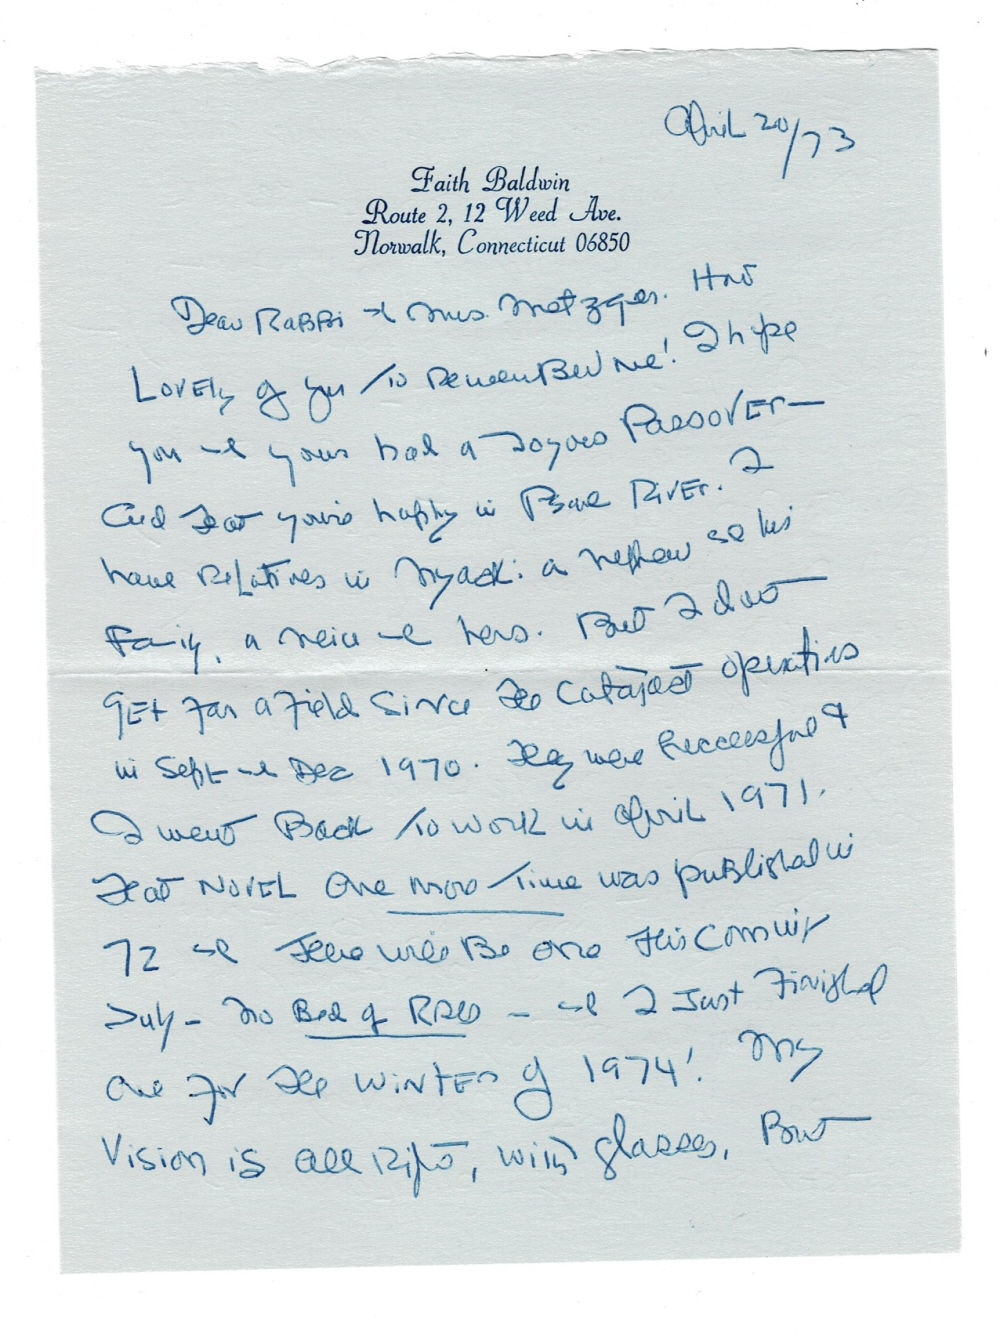 April 20/73
Faith Baldwin
Route 2, 12 Weed Ave.
Norwalk, Connecticut 06850
Dear Rabbi & Mrs. Metzger. How
Lovely of you to remember me! I hope
you & yours had a Joyous Passover—
and that you're happy in Pearl River. I
have Relatives in Nyack: a nephew & his
Family, a neice & hers. But I don't
get far afield Since the Cataract operations
in Sept & Dec 1970. They were successful &
I went Back to work in April 1971.
That NOVEL One More Time was published in
72 & there will Be one this coming
July - No Bed of Roses - & I Just Finished
one for the WINTER of 1974! My
Vision is all right, with glasses, But